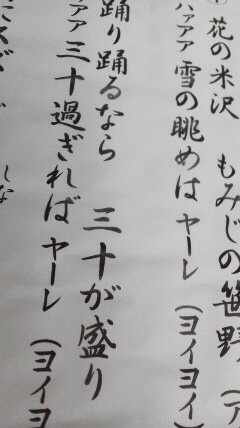 花の米沢 もみじの笹野 (ア
ハァァァ 雪の眺めは ヤーレ (ヨイヨイ)
踊り踊るなら 三十が盛り
ァァァ 三十過ぎれば ヤーレ (ヨイヨ
しな